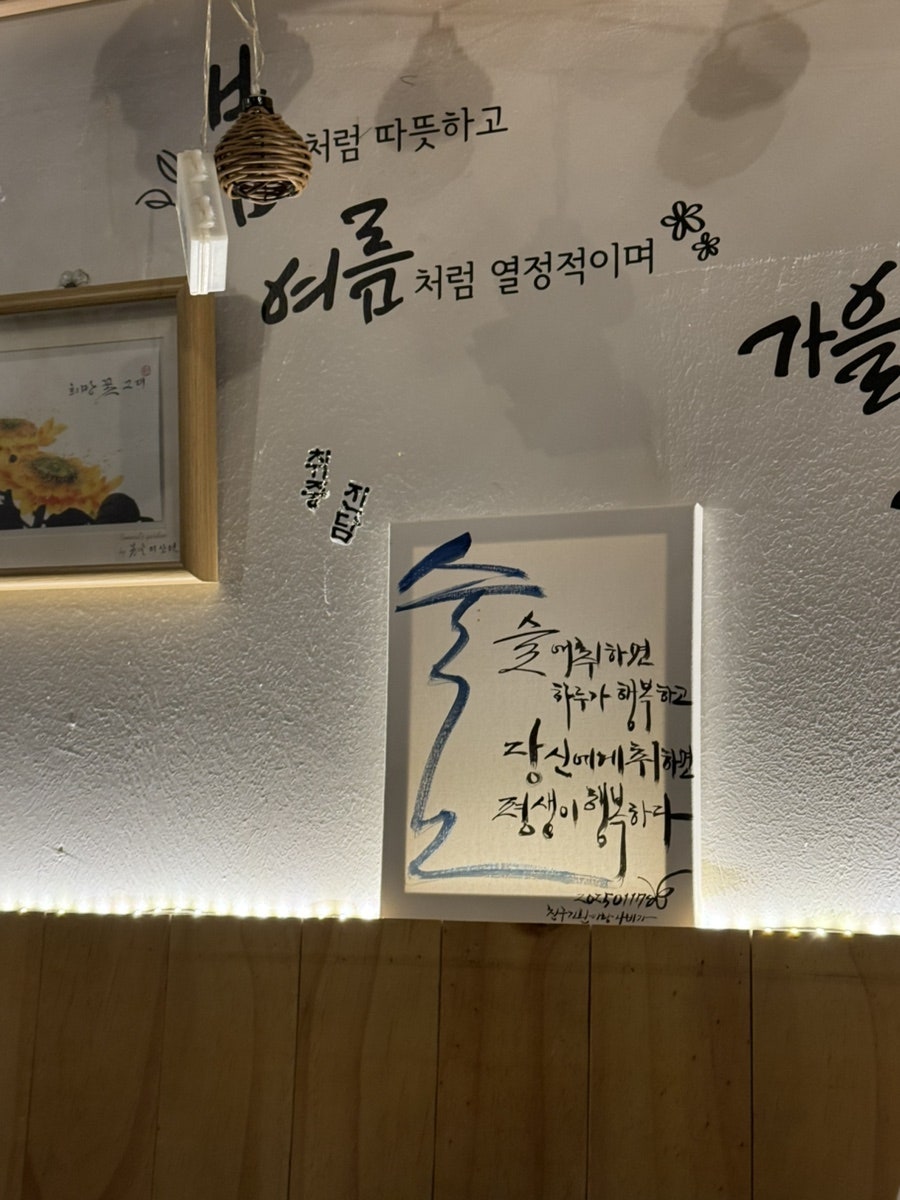 봄처럼 따뜻하고
여름처럼 열정적이며
가을
희망 꽃 그대
취중
진담
술
술에 취하면
하루가 행복하고
당신에게 취하면
평생이 행복하다
20250117